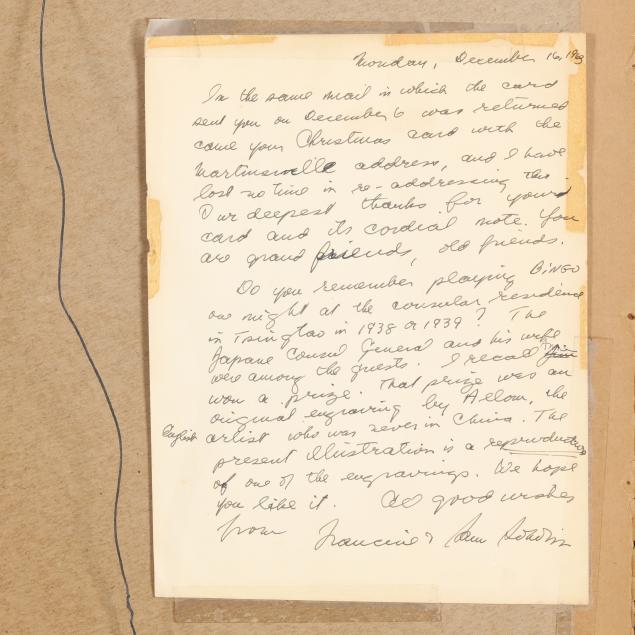 Monday, December 16, 1963
In the same mail in which the card
sent you on December 6 was returned
came your Christmas card with the
Martinsville address, and I have
lost no time in re-addressing this.
Our deepest thanks for your
card and its cordial note. You
are grand friends, old friends.
Do you remember playing BINGO
one night at the consular residence
in Tsingtao in 1938 or 1939? The
Japane Consul General and his wife
were among the guests. I recall
won a prize. That prize was an
original engraving by Allom, the
English artist who was never in China. The
present illustration is a reproduction
of one of the engravings. We hope
you like it. All good wishes
from Francine & Sam